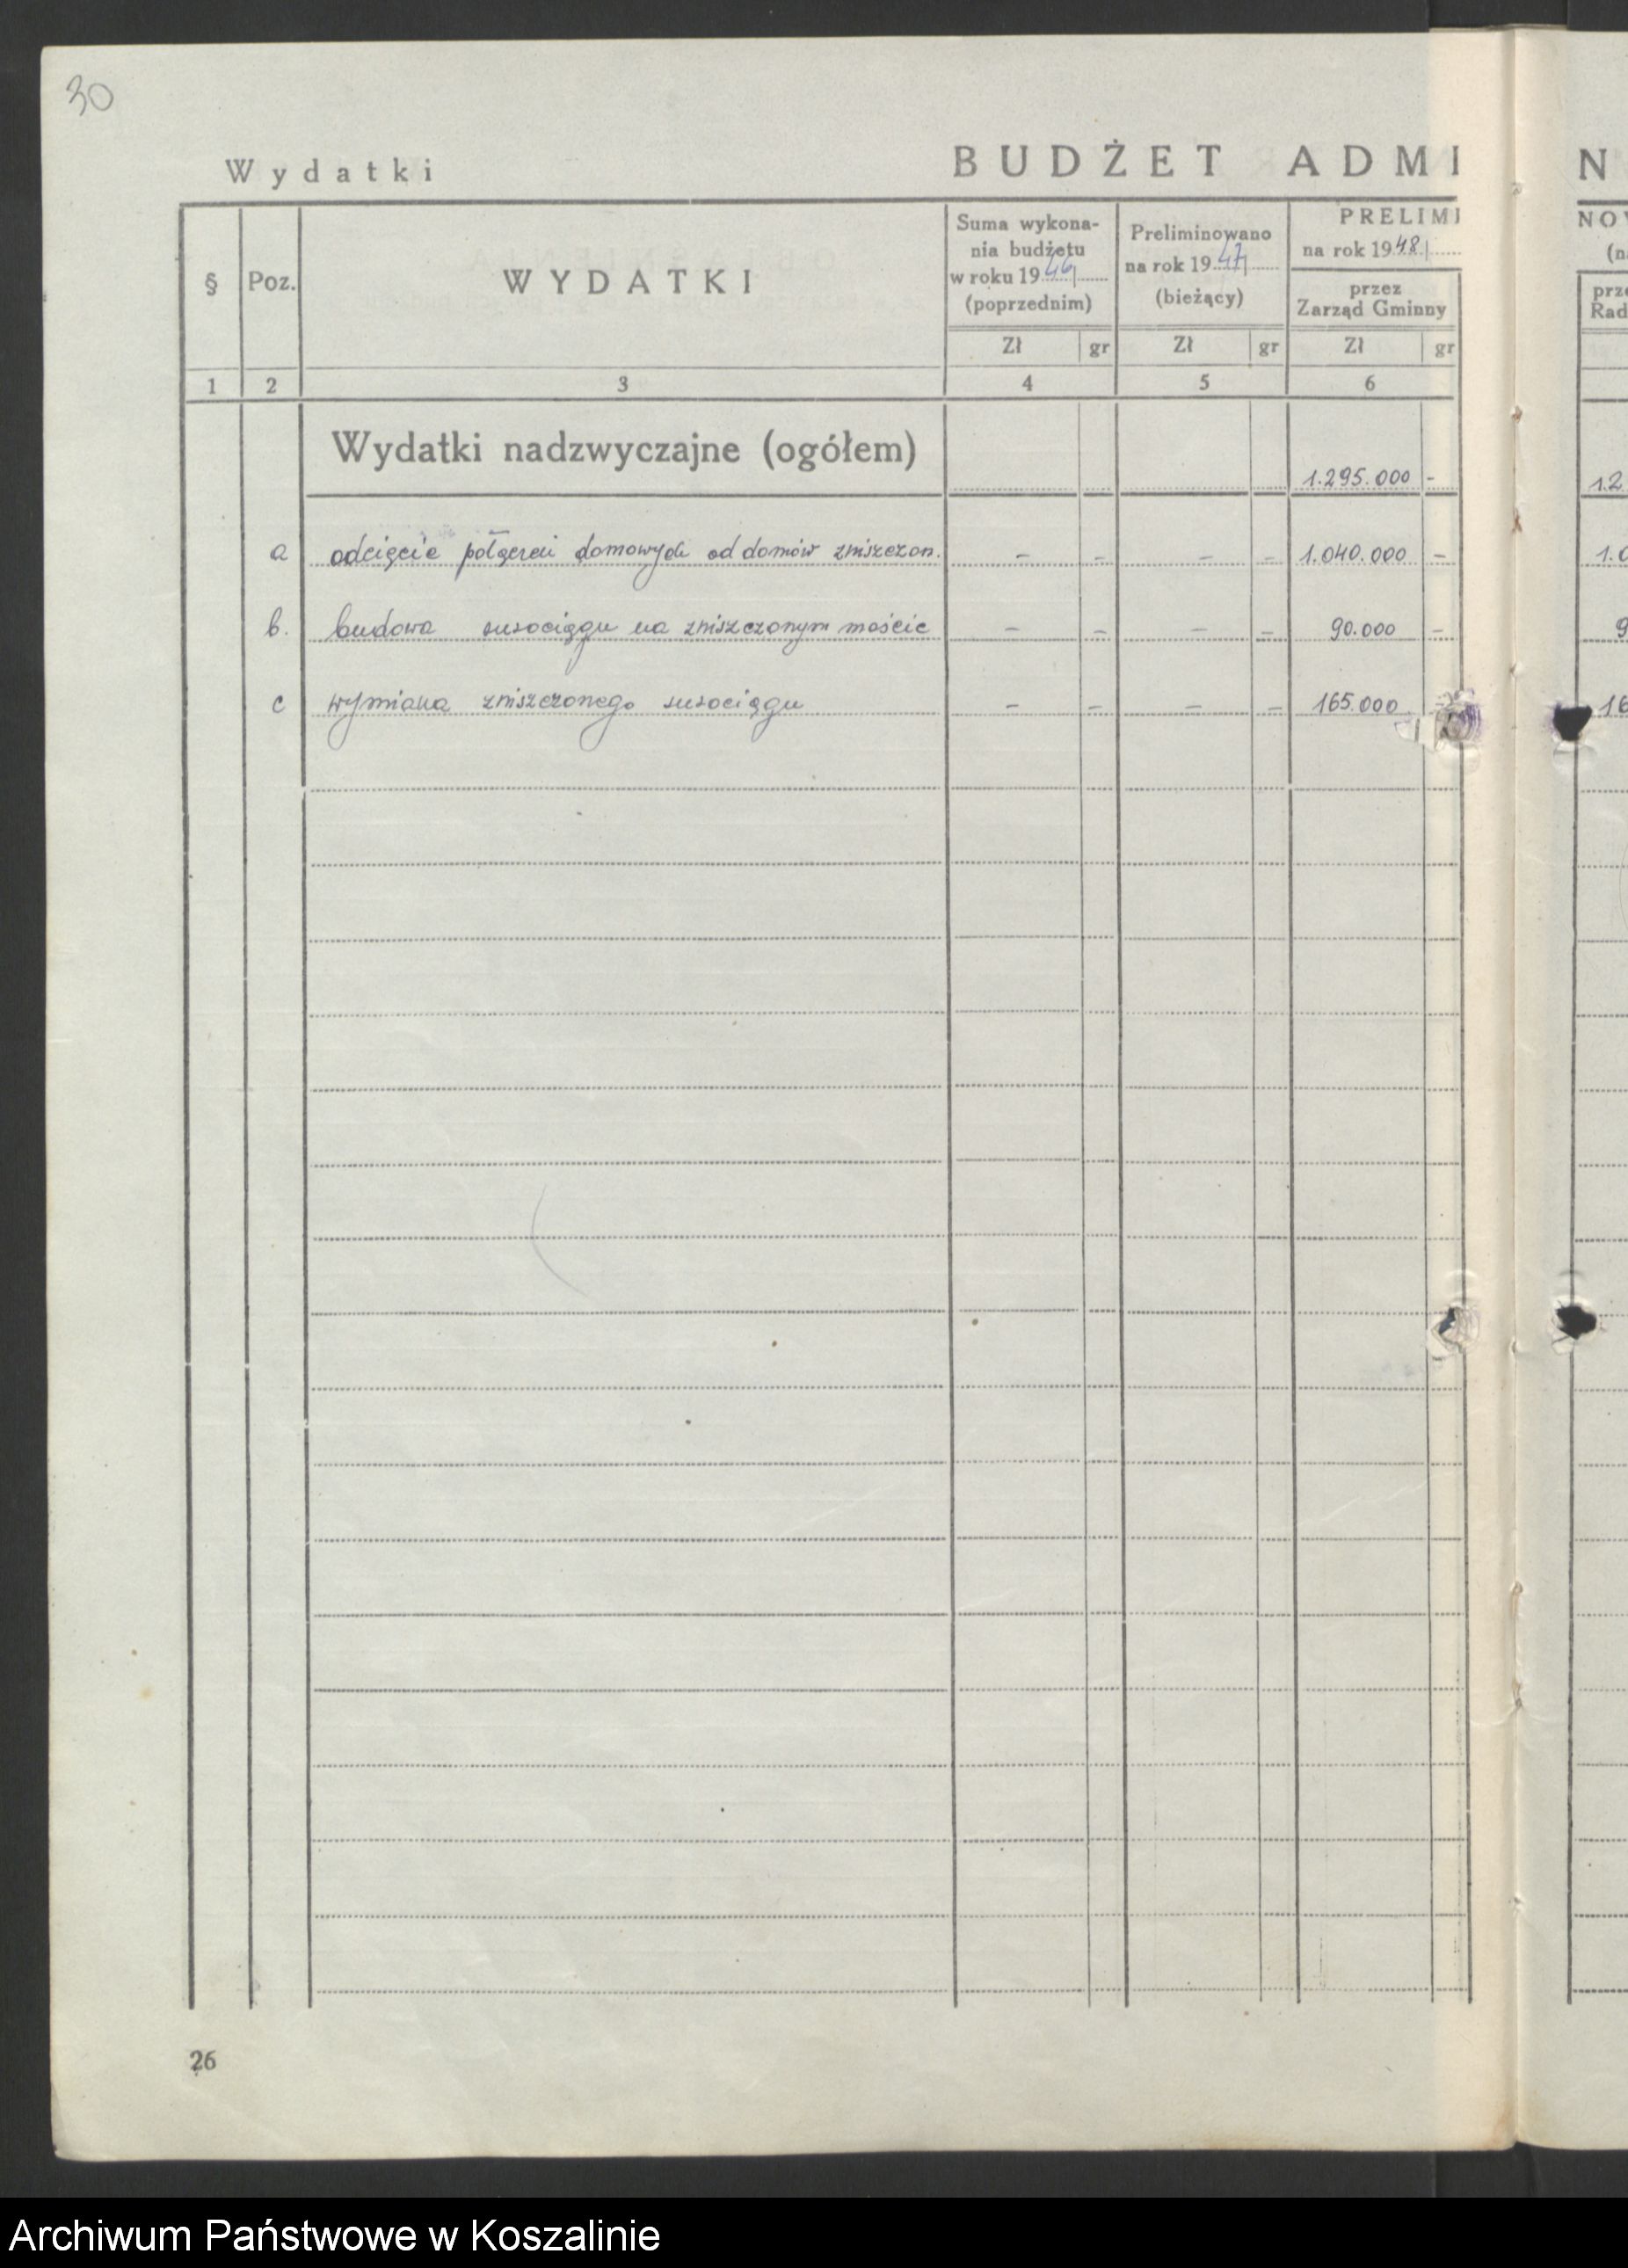 30
Wydatki
BUDŻET ADMI
N
§
Poz.
WYDATKI
Suma wykona-
nia budżetu
w roku 1946
(poprzednim)
Preliminowano
na rok 1947
(bieżący)
PRELIMI
na rok 1948
przez
Zarząd Gminny
NOW
(na
prze
Rad
Zł gr Zł gr Zł gr
1 2 3 4 5 6
Wydatki nadzwyczajne (ogółem) 1.295.000 - 1.2
a odcięcie połączeń domowych od domów zniszczon. - - - - 1.040.000 - 1.0
b. budowa rurociągu na zniszczonym moście - - - - 90.000 - 9
c wymiana zniszczonego rurociągu - - - - 165.000 - 16
26
Archiwum Państwowe w Koszalinie